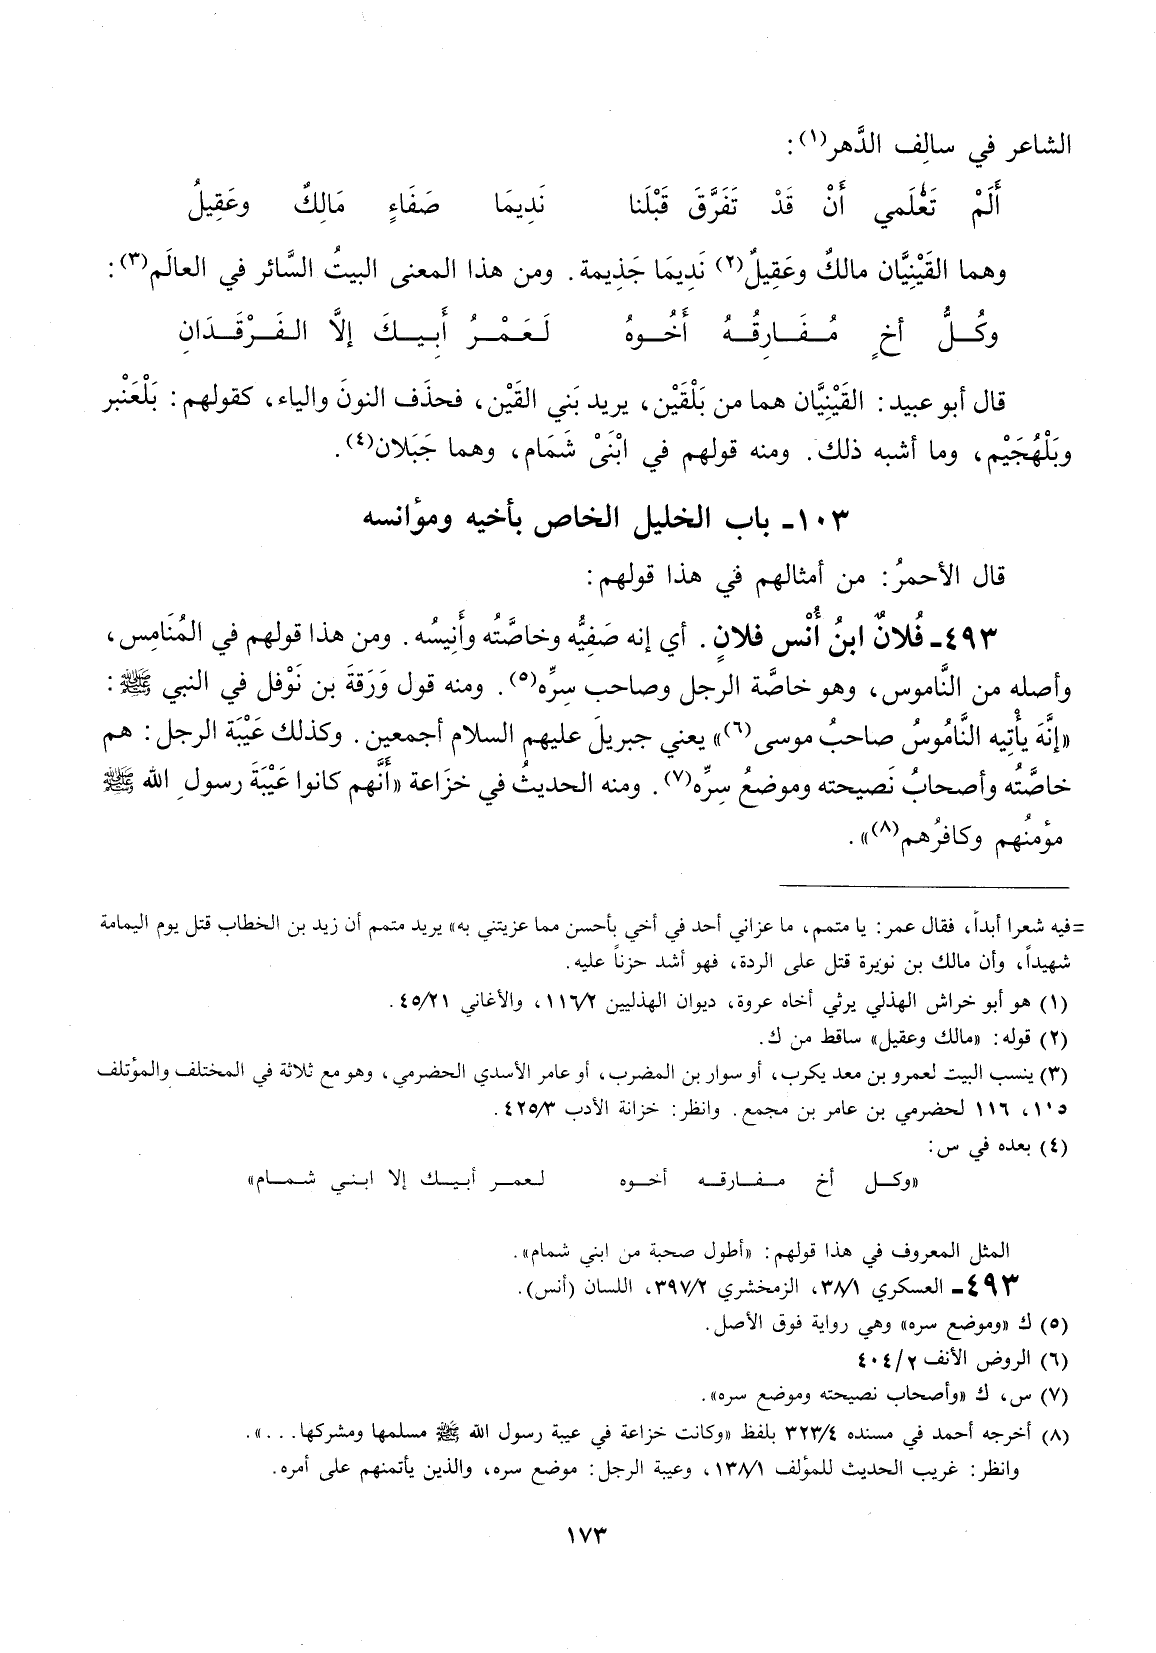 الشاعر في سالِف الدَّهر(١):
أَلَمْ تَعْلَمي أَنْ قَدْ تَفَرَّقَ قَبْلَنا نَدِيمَا صَفَاءٍ مَالِكٌ وعَقِيلُ
وهما القَيْنِيَّان مالكٌ وعَقِيلٌ(٢) نَدِيمَا جَذِيمة. ومن هذا المعنى البيتُ السَّائر في العالَم(٣):
وكُـلُّ أخٍ مُـفَـارِقُـهُ أَخُـوهُ لَعَمْـرُ أَبِـيـكَ إلاَّ الـفَـرْقَـدَانِ
قال أبو عبيد: القَيْنِيَّان هما من بَلْقَيْن، يريد بَني القَيْن، فحذَف النونَ والياء، كقولهم: بَلْعَنْبر
وبَلْهُجَيْم، وما أشبه ذلك. ومنه قولهم في ابْنَىْ شَمَام، وهما جَبَلان(٤).
١٠٣ـ باب الخليل الخاص بأخيه ومؤانسه
قال الأحمرُ: من أمثالهم في هذا قولهم:
٤٩٣ـ فُلانٌ ابنُ أُنْس فلانٍ. أي إنه صَفِيُّه وخاصَّتُه وأَنِيسُه. ومن هذا قولهم في المُنَامِس،
وأصله من النَّاموس، وهو خاصَّة الرجل وصاحب سِرِّه(٥). ومنه قول وَرَقةَ بن نَوْفل في النبي ﷺ:
«إنَّهَ يأْتِيه النَّامُوسُ صاحبُ موسى(٦)» يعني جبريلَ عليهم السلام أجمعين. وكذلك عَيْبَة الرجل: هم
خاصَّتُه وأصحابُ نَصيحته وموضعُ سِرِّه(٧). ومنه الحديثُ في خزَاعة «أنَّهم كانوا عَيْبَةَ رسولِ الله ﷺ
مؤمنُهم وكافرُهم(٨)».
=فيه شعرا أبداً، فقال عمر: يا متمم، ما عزاني أحد في أخي بأحسن مما عزيتني به» يريد متمم أن زيد بن الخطاب قتل يوم اليمامة
شهيداً، وأن مالك بن نويرة قتل على الردة، فهو أشد حزناً عليه.
(١) هو أبو خراش الهذلي يرثي أخاه عروة، ديوان الهذليين ١١٦/٢، والأغاني ٤٥/٢١.
(٢) قوله: «مالك وعقيل» ساقط من ك.
(٣) ينسب البيت لعمرو بن معد يكرب، أو سوار بن المضرب، أو عامر الأسدي الحضرمي، وهو مع ثلاثة في المختلف والمؤتلف
١٠٥، ١١٦ لحضرمي بن عامر بن مجمع. وانظر: خزانة الأدب ٤٢٥/٣.
(٤) بعده في س:
«وكـل أخ مـفـارقـه أخـوه لـعمـر أبـيـك إلا ابـنـي شـمـام»
المثل المعروف في هذا قولهم: «أطول صحبة من ابني شمام».
٤٩٣ـ العسكري ٣٨/١، الزمخشري ٣٩٧/٢، اللسان (أنس).
(٥) ك «وموضع سره» وهي رواية فوق الأصل.
(٦) الروض الأنف ٤٠٤/٢
(٧) س، ك «وأصحاب نصيحته وموضع سره».
(٨) أخرجه أحمد في مسنده ٣٢٣/٤ بلفظ «وكانت خزاعة في عيبة رسول الله ﷺ مسلمها ومشركها...».
وانظر: غريب الحديث للمؤلف ١٣٨/١، وعيبة الرجل: موضع سره، والذين يأتمنهم على أمره.
١٧٣